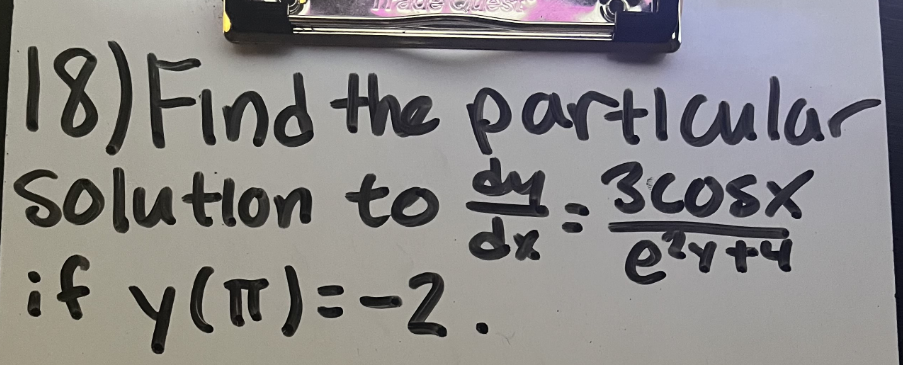 Trade Quest
18) Find the particular
solution to dy/dx = 3cosx/e^(2y+4)
if y(π)=-2.